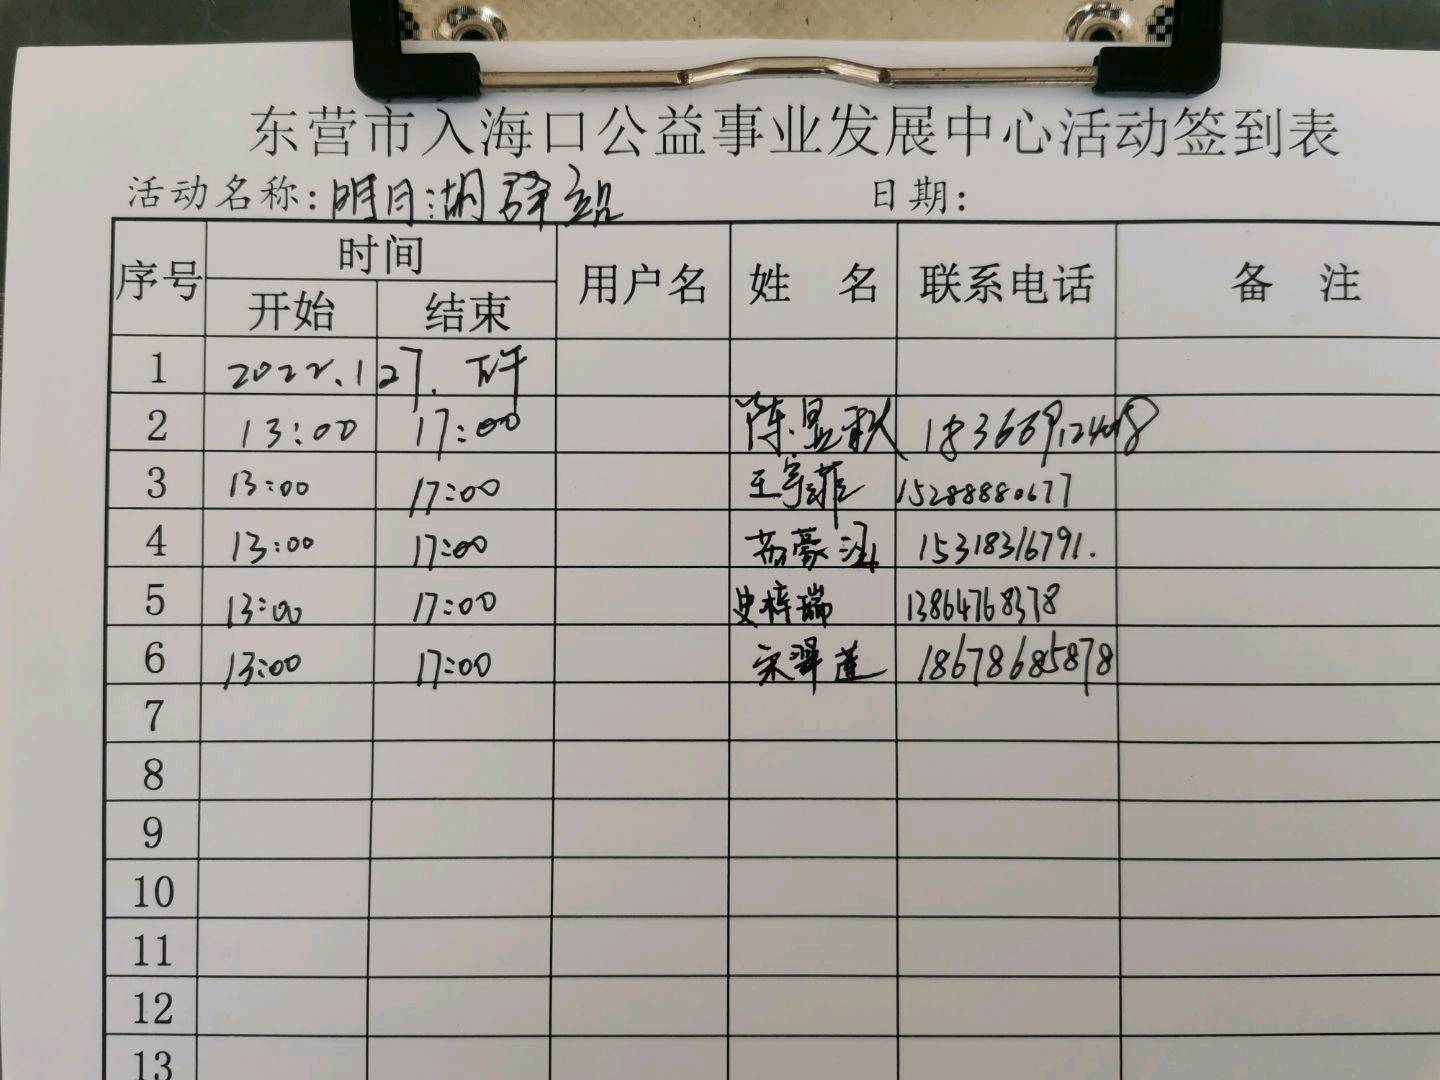 东营市入海口公益事业发展中心活动签到表
活动名称：明月湖驿站 日期：
序号 时间 用户名 姓 名 联系电话 备 注
开始 结束
1 2022.1 27. 下午
2 13:00 17:00 陈显秋
3 13:00 17:00 王宇菲 15288880677
4 13:00 17:00 苏豪 15318316791.
5 13:00 17:00 史梓瑞 13864768378
6 13:00 17:00 宋翠莲 18678685878
7
8
9
10
11
12
13